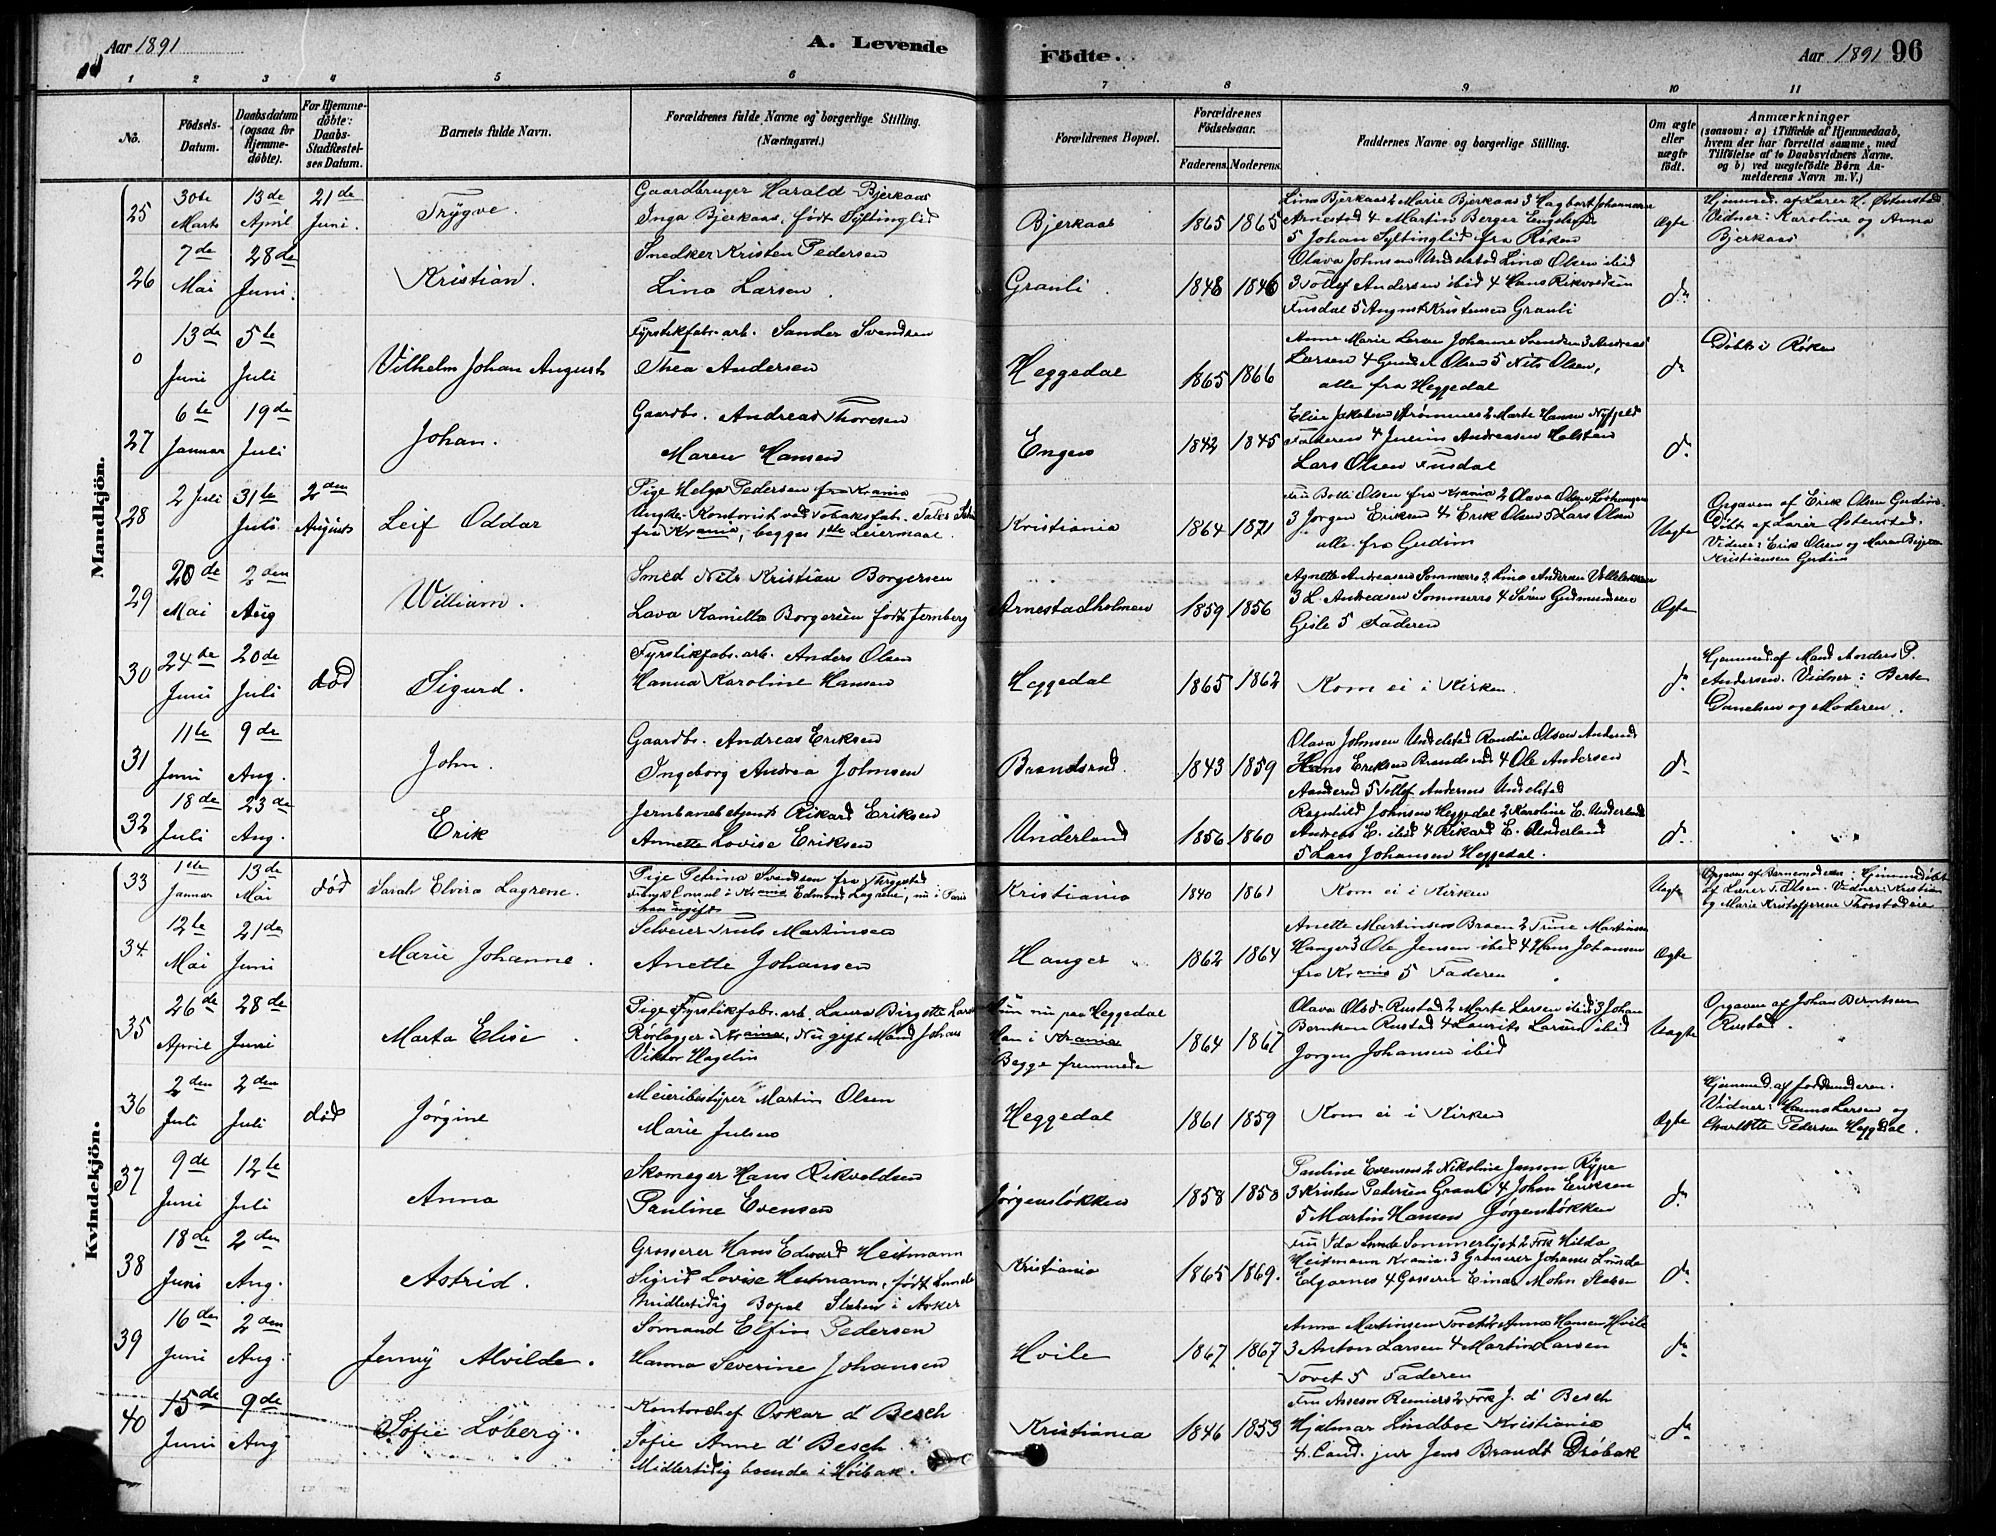 Aar 1891
A. Levende
Födte.
Aar 1891 96
1 2 3 4 5 6 7 8 9 10 11
No.
Födsels-Datum.
Daabsdatum (ogsaa for Hjemmedöbte).
For Hjemmedöbte: Daabs-Stadfæstelses Datum.
Barnets fulde Navn.
Forældrenes fulde Navne og borgerlige Stilling. (Næringsvei.)
Forældrenes Bopæl.
Forældrenes Födselsaar.
Faderens. Moderens.
Faddernes Navne og borgerlige Stilling.
Om ægte eller uægte födt.
Anmærkninger
(saasom: a) i Tilfælde af Hjemmedaab, hvem der har forrettet samme, med Tilföielse af to Daabsvidners Navne. og b) ved uægtefödte Börn Anmelderens Navn m. V.)
Mandkjön.
25 30te Marts 13de April 21de Juni. Trÿgve.
Gaardbruger Harald Bjerkaas
Inga Bjerkaas, født Syltinglid
Bjerkaas 1865 1865
Lina Bjerkaas 2 Marie Bjerkaas 3 Hagbart Johannesen
Arnestad 4 Martin Berger
5 Johan Syltinglid fra Røken
Ægte
Hjemmed. af Lærer H. Østenstad
Vidner: Karoline og Anna
Bjerkaas
26 7de Mai 28de Juni. Kristian.
Snedker Kristen Pedersen
Lina Larsen
Grauli 1848 1846
Olava Johnsen Undelstad Lina Olsen ibid
3 Tollef Andersen ibid 4 Hans Rikvoldsen
Fusdal 5 August Kristensen Grauli
do
0 13de Juni 5te Juli Vilhelm Johan August
Fyrstikfabr. arb. Sander Svendsen
Thea Andersen
Heggedal 1865 1866
Anne Marie Larsen Johanne Svendsen 3 Andreas
Larsen 4 Gunder Olsen 5 Nils Olsen,
alle fra Heggedal
do
Døbt i Røken
27 6te Januar 19de Juli Johan.
Gaardbr. Andreas Thoresen
Maren Hansen
Engen 1842 1845
Elise Jakobsen Strømnes 2 Marte Hansen
Faderen 4 Julius Andreasen Holstad
Lars Olsen Fusdal
do
28 2 Juli 31te Juli 2den August Leif Oddar
Pige Helga Pedersen fra Krania
Ungk. Kontorist ved Tobaksfab.
fra Krania, begges 1ste Leiermaal.
Kristiania 1864 1871
Fru Bolli Olsen fra Krania 2 Olava Olsen
3 Jørgen Eriksen 4 Erik Olsen 5 Lars Olsen
alle fra Gudim
Uægte
Opgaven af Erik Olsen Gudim.
Døbt af Lærer Østenstad.
Vidner: Erik Olsen og Maren
Kristiansen Gudim
29 20de Mai 2den Aug William.
Smed Nils Kristian Borgersen
Lava Kamilla Borgersen født Jernberg
Arnestadholmen 1859 1856
Agnette Andreasen Sommerro 2 Lina Andersen
3 L. Andreasen Sommerro 4 Søren Gudmundsen
Gisle 5 Faderen
Ægte
30 24de Juni 20de Juli død Sigurd.
Fyrstikfab. arb. Anders Olsen
Hanna Karoline Hansen
Heggedal 1865 1862
Kom ei i Kirken.
do
Hjemmed. af Mand Anders P.
Andersen. Vidner: Berte
Danielsen og Moderen.
31 11te Juni 9de Aug. John.
Gaardbr. Andreas Eriksen
Ingeborg Andrea Johnsen
Brendsrud. 1843 1859
Olava Johnsen Undelstad Randine Olsen Anderud
Hans Eriksen Brendsrud 4 Ole Andersen
Aanderud 5 Tollef Andersen Undelstad
do
32 18de Juli 23de Aug. Erik
Jernbanebetjent Rikard Eriksen
Annette Lovise Eriksen
Underland 1856 1860
Ragnhild Johnsen Heggedal 2 Karoline E. Underland
Andreas E. ibid 4 Rikard E. Underland
5 Lars Johansen Heggedal.
do
Kvindekjön.
33 1ste Januar 13de Mai død Sarah Elvira Lagrene.
Pige Petrina Svendsen fra
Edmond Lagrene, nu i Paris
han ugift
Kristiania 1840 1861
Kom ei i Kirken
Uægte
Opgaven af Barnemoderen. Hjemmedøbt
af Lærer T. Olsen. Vidner: Kristian
og Marie Kristoffersen
34. 12te Mai 21de Juni Marie Johanne.
Selveier Truls Martinsen
Anette Johansen
Hanger 1862 1864
Anette Martinsen Braaen 2 Trine Martinsen
Hanger 3 Ole Jensen ibid 4 Hans Johansen
fra Krania 5 Faderen
Ægte
35 26de April 28de Juni Marta Elise
Pige Fyrstikfab. arb. Laura Birgitte Larsen
Rørlægger i Krania, Nu gift Mand Johan
Viktor Hagelin
Hun nu paa Heggedal
Han i Krania
Begge fremmede
1864 1867
Olava Olsd. Rustad 2 Marte Larsen ibid 3 Johan
Berntsen Rustad 4 Laurits Larsen ibid
Jørgen Johansen ibid
Uægte
Opgaven af Johan Berntsen
Rustad.
36 2den Juli 2den Juli død Jørgine
Meieribestyrer Martin Olsen
Marie Julsen
Heggedal 1861 1859
Kom ei i Kirken
Ægte
Hjemmed. af Jordemoderen.
Vidner: Hanna Larsen og
Charlotte Pedersen Heggedal.
37 9de Juni 12te Juli Anna
Skomager Hans Rikvoldsen
Pauline Evensen
Jørgensløkken 1858 1850
Pauline Evensen 2 Nikoline Jensen Rype
3 Kristen Pedersen Grauli 4 Johan Eriksen
5 Martin Hansen Jørgensløkken
do
38 18de Juni 2den Aug. Astrid.
Grosserer Hans Edward Heitmann
Sigrid Lovise Heitmann, født Lunde
Midlertidig Bopæl Slæben i Asker
Kristiania 1865 1869.
Fru Ida Lunde Sommerlyst 2 Frk Hilda
Heitmann Krania 3 Grosserer Johannes Lunde
Edgarnes 4 Grosserer Einar Mohn Slæben
do
39 16de Juni 2den Aug. Jenny Alvilde.
Sømand Elfin Pedersen
Hanna Severine Johansen
Hvile 1867 1867
Anna Martinsen Tovet 2 Anna Hansen Hvile
3 Anton Larsen 4 Martin Larsen
Tovet 5 Faderen
do
40 15de Juni 9de Aug Sofie Løberg.
Kontorchef Oskar d' Besch
Sofie Anne d' Besch
Midlertidig boende i Høibak.
Kristiania 1846 1853
Fru Assesor Reimers 2 Frk J. d' Besch
Hjalmar Lindboe Kristiania
4. Cand. jur Jens Brandt Drøbak
do